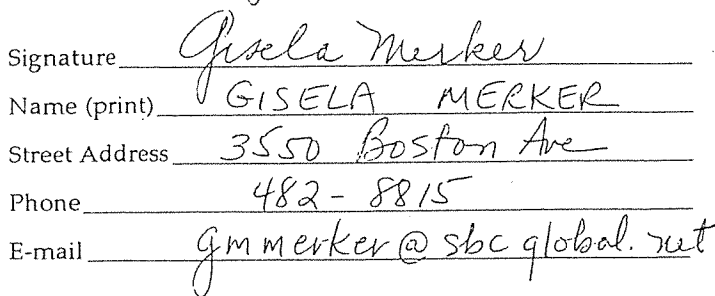 Signature Gisela Merker
Name (print) GISELA MERKER
Street Address 3550 Boston Ave
Phone 482-8815
E-mail gmmerker@sbcglobal.net